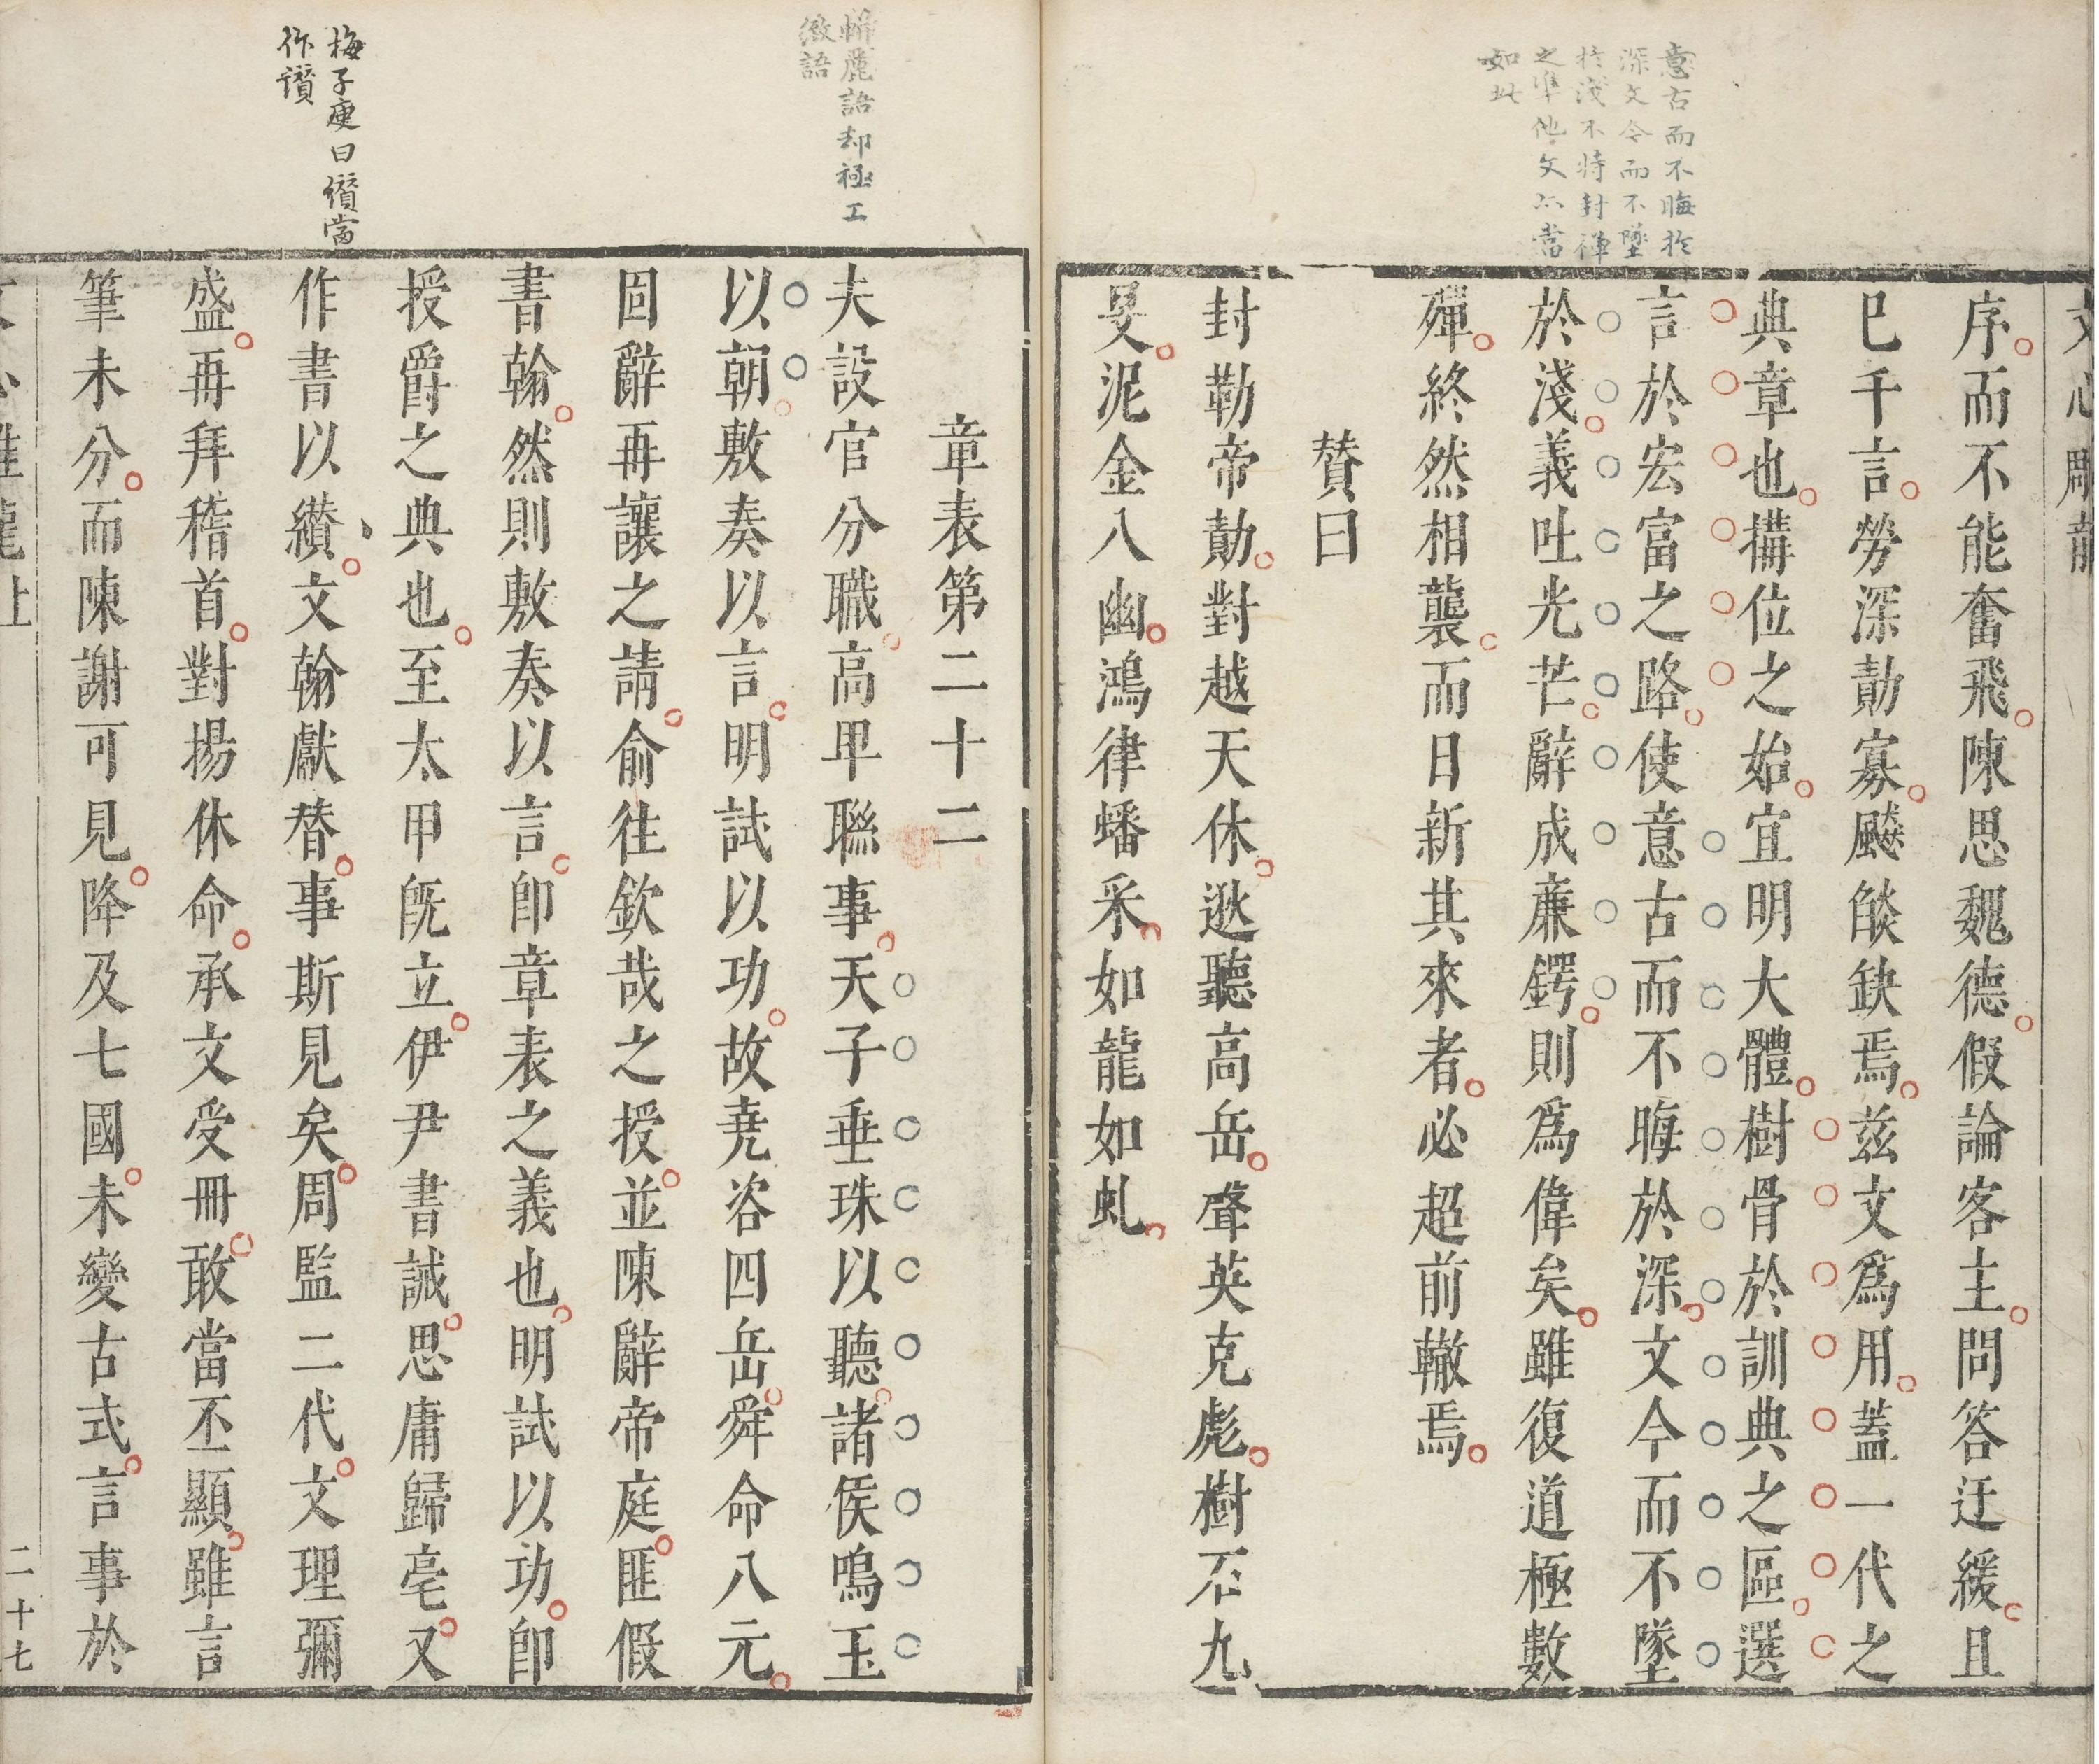 文心雕龍
意古而不晦於
深文今而不墜
於淺不特封禪
之準他文亦當
如此
序而不能奮飛陳思魏德假論客主問答迂緩且
巳千言勞深勣寡飈燄缺焉茲文爲用蓋一代之
典章也搆位之始宜明大體樹骨於訓典之區選
言於宏富之路使意古而不晦於深文今而不墜
於淺義吐光芒辭成廉鍔則爲偉矣雖復道極數
殫終然相襲而日新其來者必超前轍焉
贊曰
封勒帝勣對越天休逖聽高岳聲英克彪樹石九
旻泥金八幽鴻律蟠采如龍如虬
駢麗語却極工
緻語
章表第二十二
夫設官分職高卑聮事天子垂珠以聽諸侯鳴玉
以朝敷奏以言明試以功故堯咨四岳舜命八元
固辭再讓之請俞往欽哉之授並陳辭帝庭匪假
書翰然則敷奏以言卽章表之義也明試以功卽
授爵之典也至太甲旣立伊尹書誡思庸歸亳又
梅子庾曰儧當
作讚
作書以纉文翰獻替事斯見矣周監二代文理彌
盛再拜稽首對揚休命承文受冊敢當丕顯雖言
筆未分而陳謝可見降及七國未變古式言事於
文心雕龍上
二十七